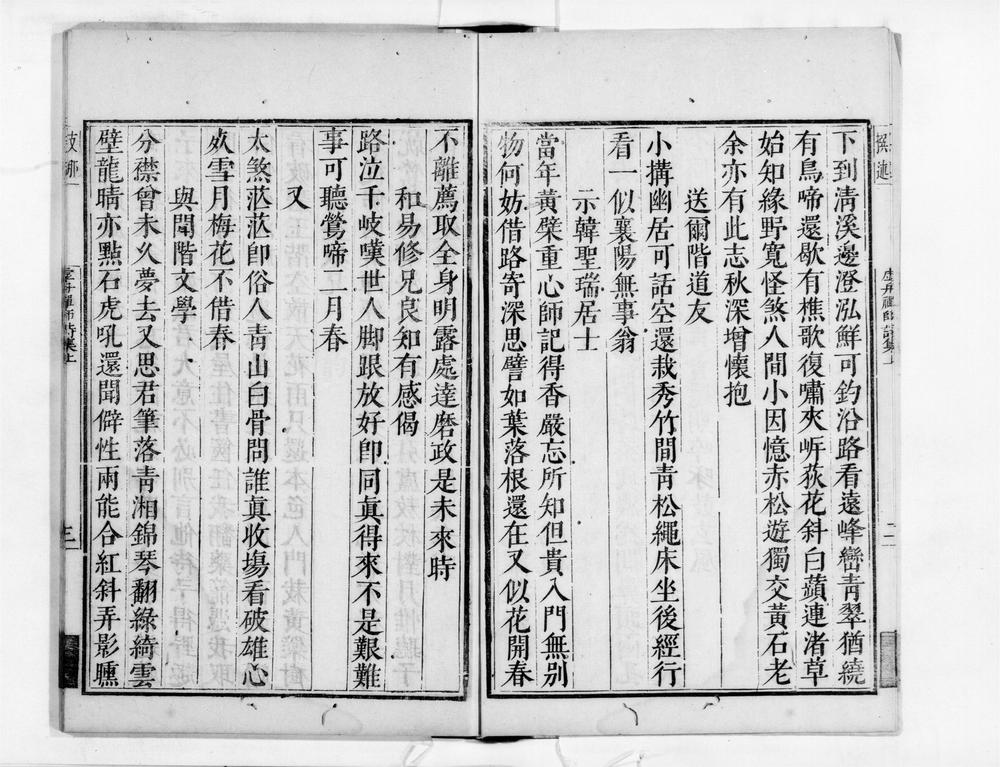 下到清溪邊澄泓鮮可釣沿路看遠峰巒青翠猶繞
有鳥啼還歇有樵歌復嘯夾岍荻花斜白蘋連渚草
始知緣野寬怪煞人間小因憶赤松遊獨交黃石老
余亦有此志秋深增懷抱
送爾階道友
小搆幽居可話空還栽秀竹間青松繩床坐後經行
看一似襄陽無事翁
示韓聖瑞居士
當年黃檗重心師記得香嚴忘所知但貴入門無別
物何妨借路寄深思譬如葉落根還在又似花開春
不離薦取全身明露處達磨政是未來時
和易修兄良知有感偈
路泣千岐嘆世人脚跟放好卽同眞得來不是艱難
事可聽鶯啼二月春
又
太煞茫茫卽俗人青山白骨問誰眞收塲看破雄心
処雪月梅花不借春
與聞階文學
分襟曾未久夢去又思君筆落青湘錦琴翻綠綺雲
壁龍睛亦點石虎吼還聞僻性兩能合紅斜弄影曛